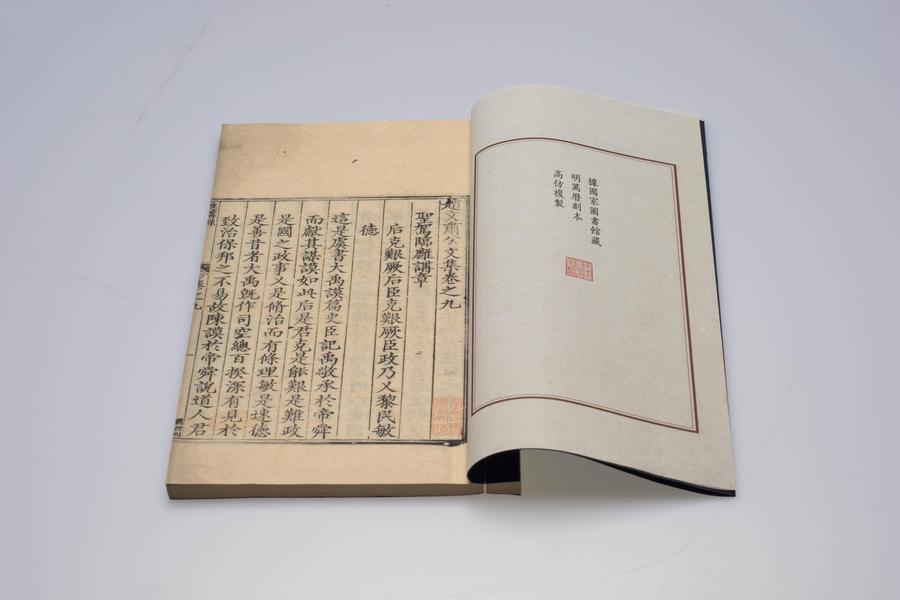 據國家圖書館藏
明萬曆刻本
高仿複製
趙文肅公文集卷之九
聖駕臨雝講章
后克艱厥后臣克艱厥臣政乃乂黎民敏
德
這是虞書大禹謨篇史臣記禹敬承於帝舜
而獻其謀謨如此后是君克是能艱是難政
是國之政事乂是脩治而有條理敏是速德
是善昔者大禹旣作司空總百揆深有見於
致治保邦之不易故陳謨於帝舜說道人君
卷之九